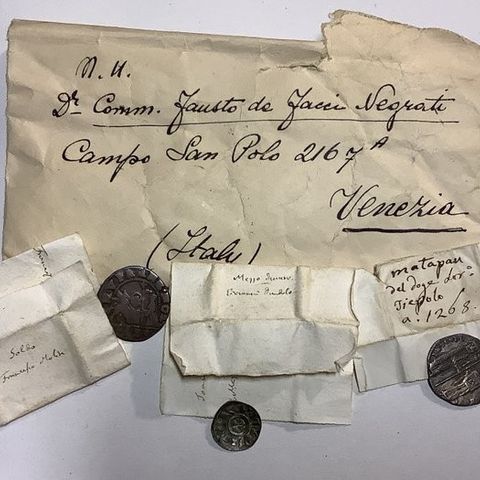 N. H.
Dr Comm. Fausto de Facci Negrati
Campo San Polo 2167 A
Venezia
(Italy)
Soldo
Francesco Molin
Mezzo
matapan
del doge Lor.º
Tiepolo
a. 1268.